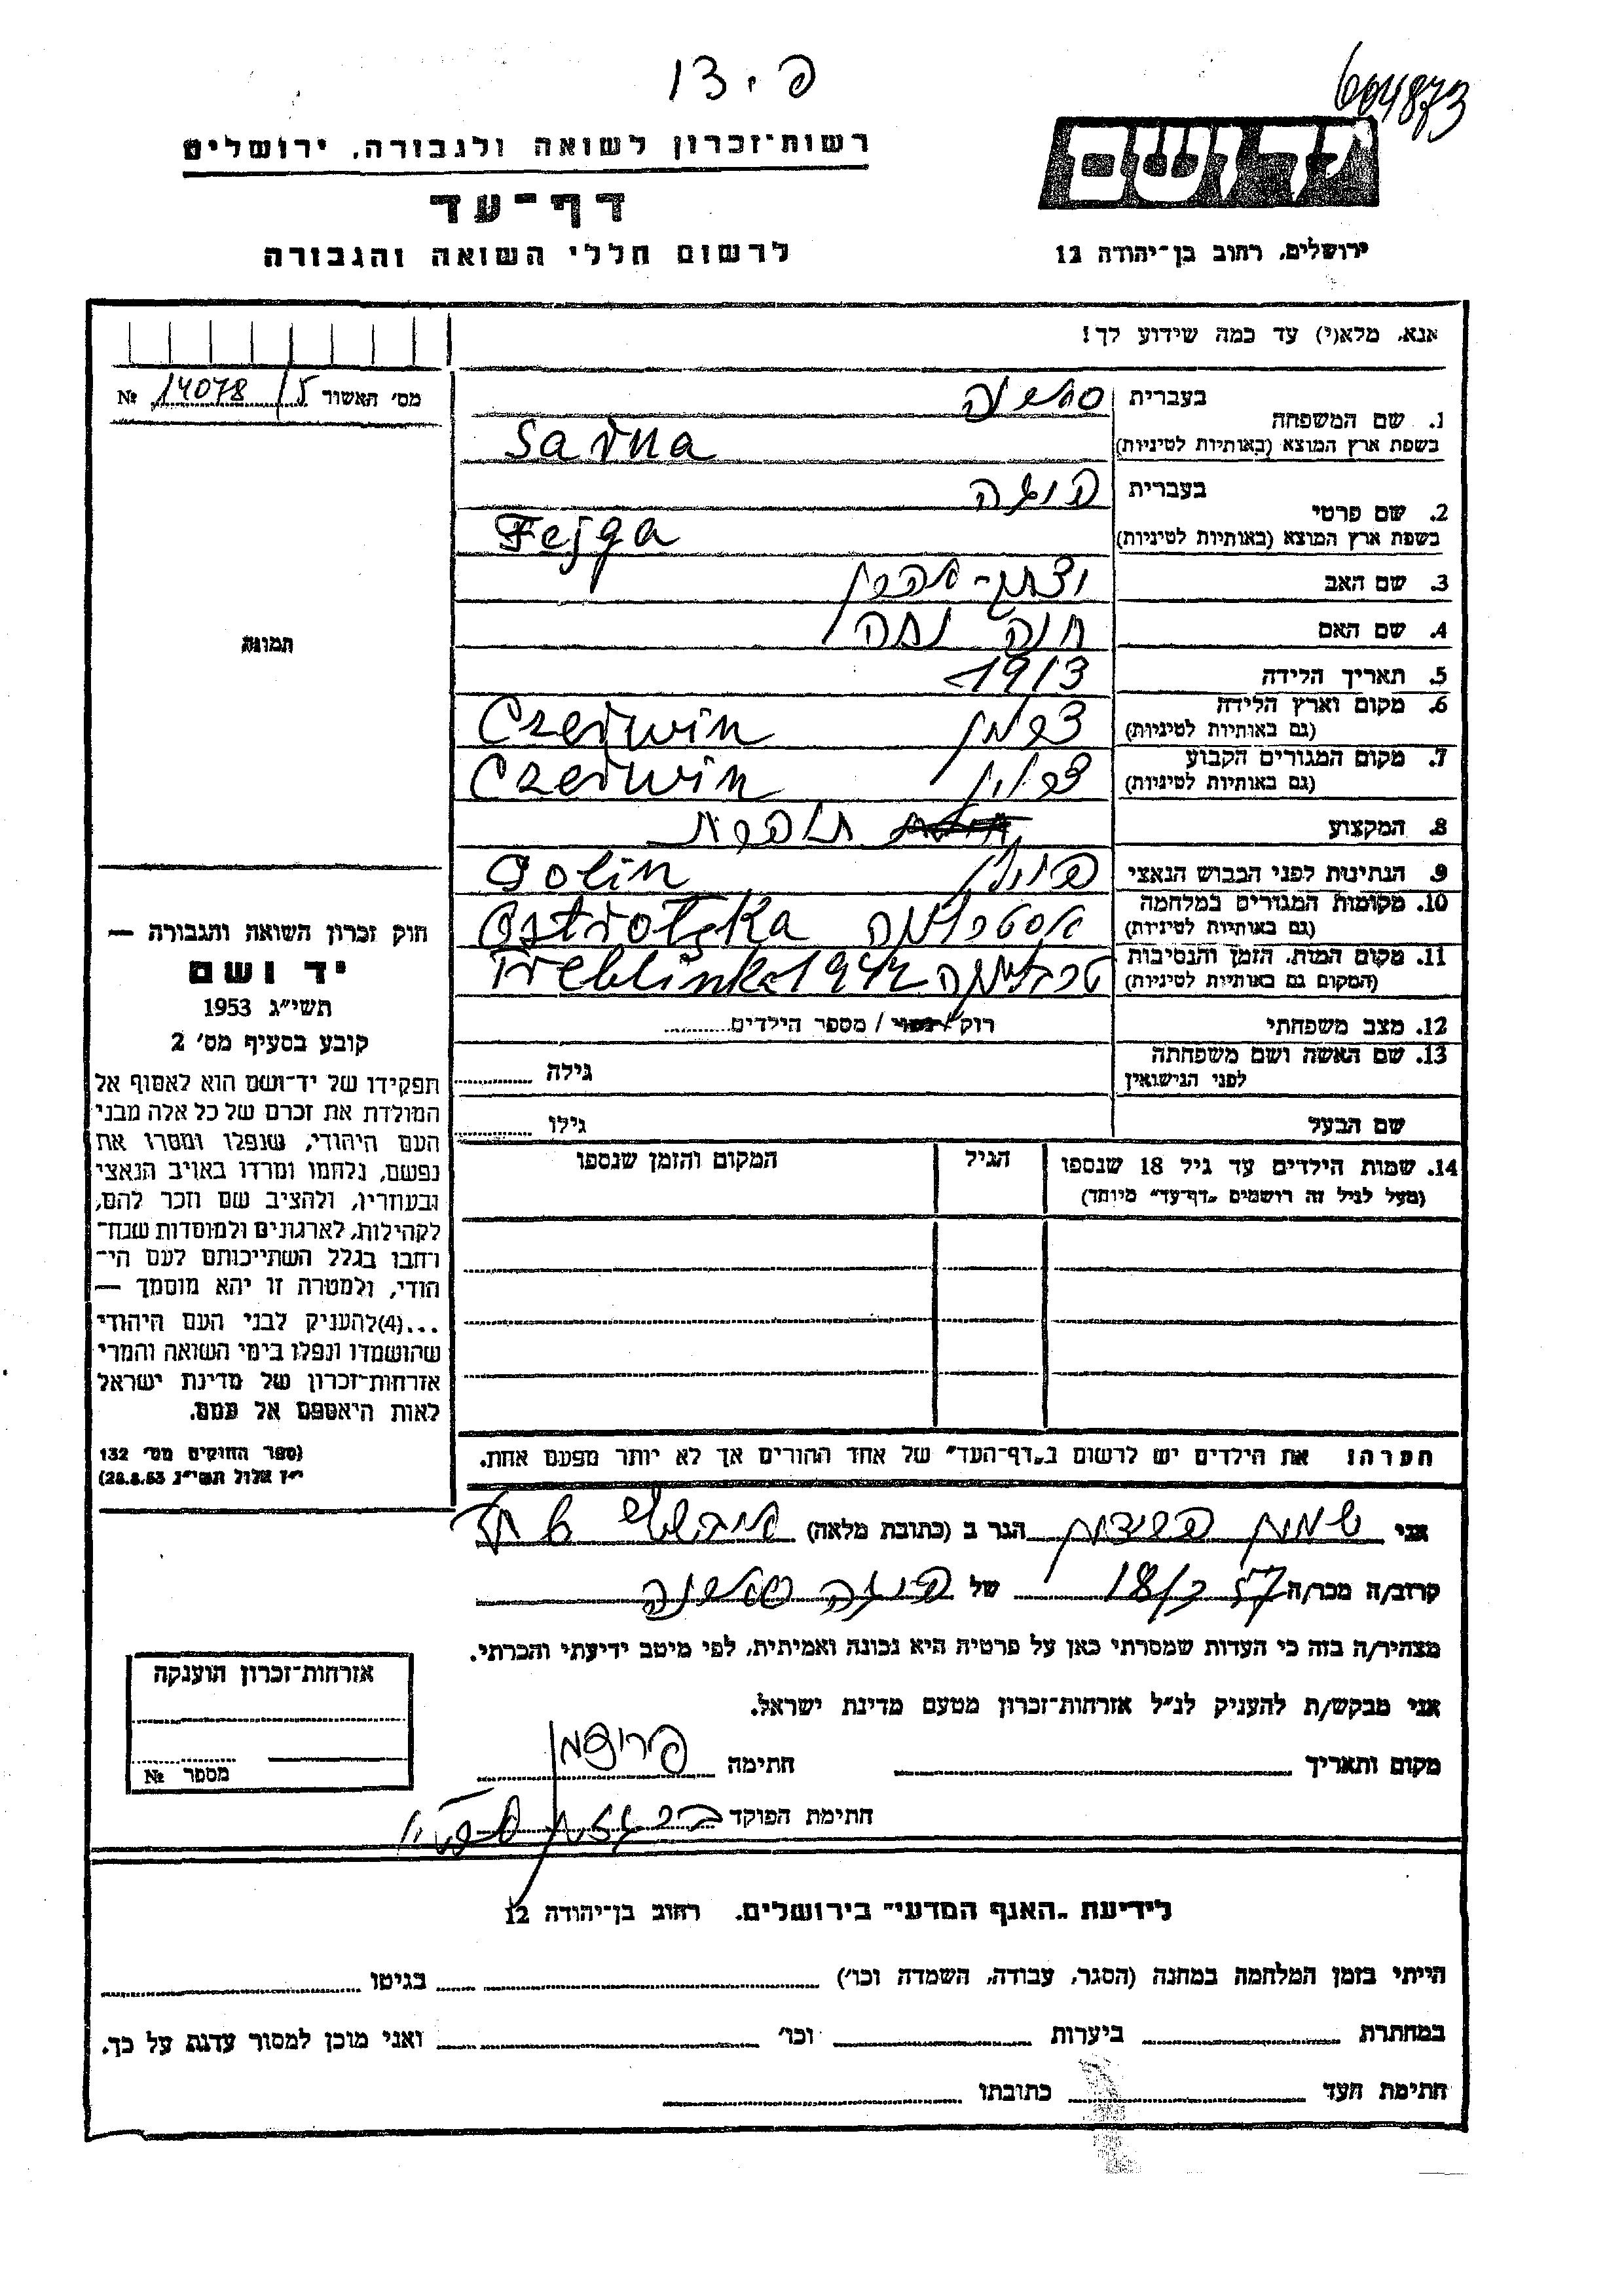 פ.צו
604873
רשות־זכרון לשואה ולגבורה, ירושלים
דף־עד
לרשום חללי השואה והגבורה
יד ושם
ירושלים, רחוב בן־יהודה 12
אנא, מלא(י) עד כמה שידוע לך!
מס׳ האשור 14078/5 №
תמונה
1. שם המשפחה
בעברית
בשפת ארץ המוצא (באותיות לטיניות) Sarna
2. שם פרטי
בעברית פייגה
בשפת ארץ המוצא (באותיות לטיניות) Fejga
3. שם האב
4. שם האם חנה
5. תאריך הלידה 1913
6. מקום וארץ הלידה
(גם באותיות לטיניות) Czerwin
7. מקום המגורים הקבוע
(גם באותיות לטיניות) Czerwin
8. המקצוע תופרת
9. הנתינות לפני הכבוש הנאצי פולין Polin
10. מקומות המגורים במלחמה
(גם באותיות לטיניות) Ostrolęka
11. מקום המות, הזמן והנסיבות
(המקום גם באותיות לטיניות) טרבלינקה 1942 Treblinka
12. מצב משפחתי רוק / נשוי / מספר הילדים
13. שם האשה ושם משפחתה
לפני הנישואין גילה
שם הבעל גילו
14. שמות הילדים עד גיל 18 שנספו הגיל המקום והזמן שנספו
(מעל לגיל זה רושמים „דף־עד״ מיוחד)
חוק זכרון השואה והגבורה —
יד ושם
תשי״ג 1953
קובע בסעיף מס׳ 2
תפקידו של יד־ושם הוא לאסוף אל
המולדת את זכרם של כל אלה מבני
העם היהודי, שנפלו ומסרו את
נפשם, נלחמו ומרדו באויב הנאצי
ובעוזריו, ולהציב שם וזכר להם,
לקהילות, לארגונים ולמוסדות שנח־
רחבו בגלל השתייכותם לעם הי־
הודי, ולמטרה זו יהא מוסמך —
...(4)להעניק לבני העם היהודי
שהושמדו ונפלו בימי השואה והמרי
אזרחות־זכרון של מדינת ישראל
לאות היאספם אל עמם.
(ספר החוקים מס׳ 132
י״ז אלול תשי״ג 28.8.53)
הערה: את הילדים יש לרשום ב„דף־העד״ של אחד ההורים אך לא יותר מפעם אחת.
אני הגר ב (כתובת מלאה)
קרוב/ה מכר/ה של פייגה
מצהיר/ה בזה כי העדות שמסרתי כאן על פרטיה היא נכונה ואמיתית, לפי מיטב ידיעתי והכרתי.
אני מבקש/ת להעניק לנ״ל אזרחות־זכרון מטעם מדינת ישראל.
מקום ותאריך חתימה
חתימת הפוקד
אזרחות־זכרון הוענקה
מספר №
לידיעת „האנף המדעי״ בירושלים, רחוב בן־יהודה 12
הייתי בזמן המלחמה במחנה (הסגר, עבודה, השמדה וכו׳) בגיטו
במחתרת ביערות וכו׳ ואני מוכן למסור עדות על כך.
חתימת העד כתובתו